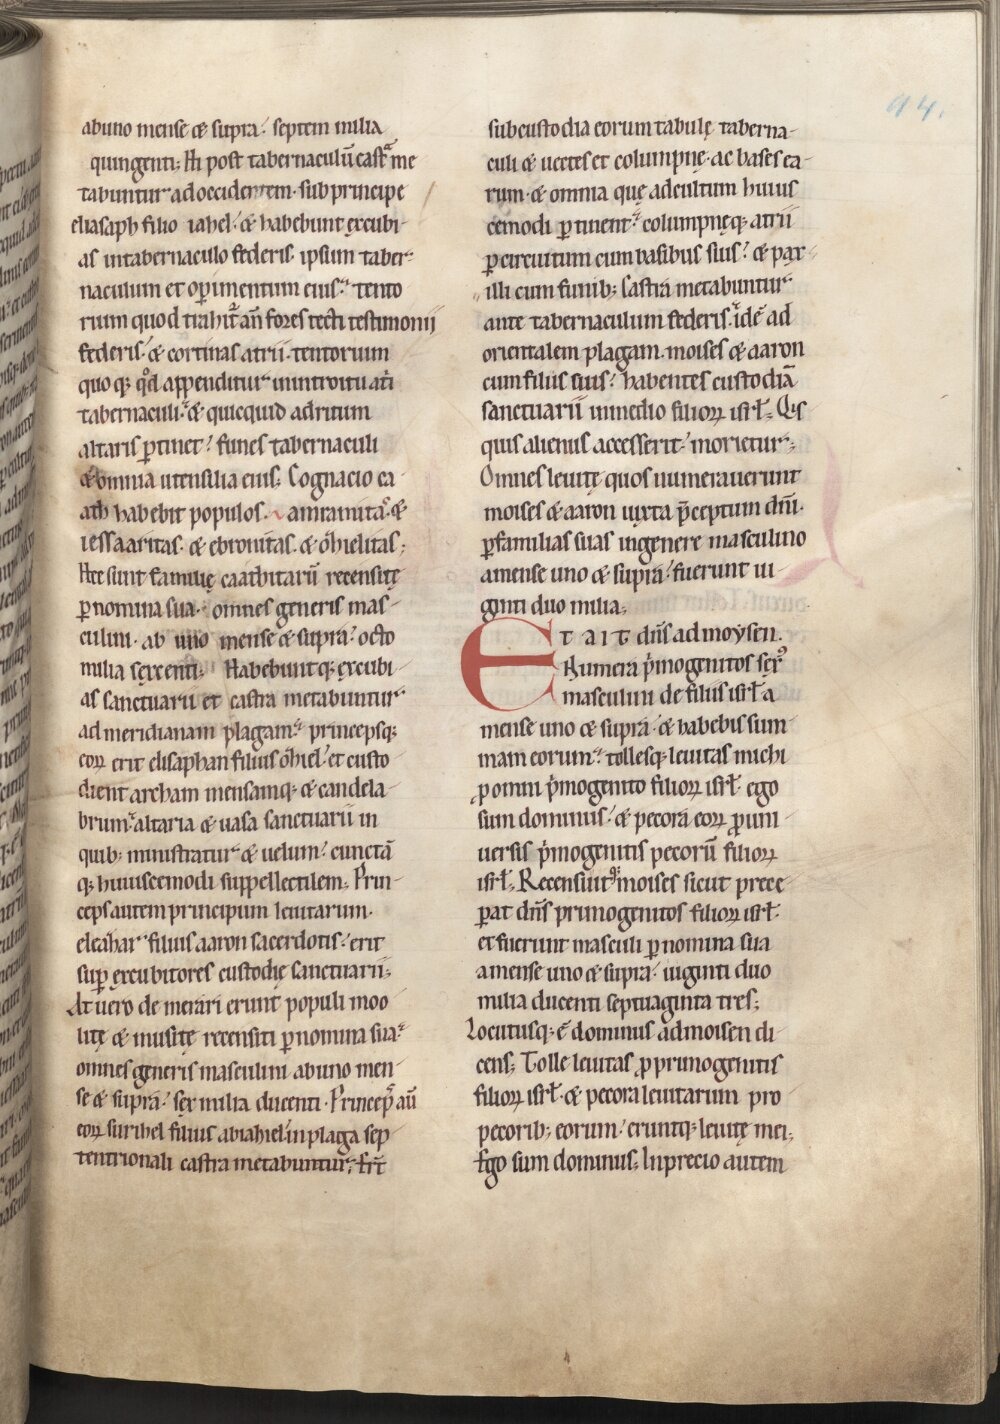 94.
abuno mense & supra. septem milia
quingenti; Hi post tabernaculū castra me
tabuntur adoccidentem. sub principe
eliasaph filio iahel. & habebunt excubi-
as intabernaculo federis. ipsum taber-
naculum et op̄imentum eius. tento
rium quod trahit̄ an̄ fores tecti testimonii
federis. & cortinas atrii. tentorium
quoq; qđ appenditur inintroitu atrii
tabernaculi. & quicquid adritum
altaris p̄tinet. funes tabernaculi
& omnia utensilia eius; Cognacio ca
ath habebit populos. amramitas &
iessaaritas. & ebronitas. & ozihelitas;
Hec sunt familię caathitarū recensitę
p̄ nomina sua. omnes generis mas-
culini. ab uno mense & supra. octo
milia sexcenti. Habebuntq; excubi-
as sanctuarii et castra metabuntur
ad meridianam plagam. princepsq;
eoꝝ erit elisaphan filius ozihel. et custo
dient archam mensamq; & candela-
brum. altaria & uasa sanctuarii in
quib; ministratur & uelum. cunctā
q; huiuscemodi suppellectilem; Prin-
ceps autem principum leuitarum.
eleahar filius aaron sacerdotis. erit
sup̄ excubitores custodię sanctuarii;
At uero de merari erunt populi moo
litę & musitę recensiti p̄ nomina sua.
omnes generis masculini abuno men-
se & supra. sex milia ducenti. Princep̄s aū
eoꝝ surihel filius abiahiel. inplaga sep-
tentrionali castra metabuntur; Er̄t
subcustodia eorum tabulę taberna-
culi & uectes et columpnę. ac bases ea-
rum. & omnia quę adcultum huius
cemodi p̄tinent. columpnęq; atrii
p̄circuitum cum basibus suis. & pax-
illi cum funib; Castra metabuntur
ante tabernaculum federis. idē ad
orientalem plagam. moises & aaron
cum filiis suis. habentes custodiā
sanctuarii inmedio filioꝝ isrł. Qis
quis alienus accesserit. morietur;
Omnes leuitę quos numerauerunt
moises & aaron iuxta p̄ceptum dn̄i.
p̄familias suas ingenere masculino
amense uno & supra. fuerunt ui-
ginti duo milia;
ET AIT dn̄s ad moysen.
Numera p̄mogenitos sex⁹
masculini de filiis isrł a
mense uno & supra. & habebis sum-
mam eorum. tollesq; leuitas michi
ꝓ omni p̄mogenito filioꝝ isrł. ego
sum dominus. & pecora eoꝝ ꝓ uni-
uersis p̄mogenitis pecorū filioꝝ
isrł; Recensuit moises sicut prece-
p̄at dn̄s primogenitos filioꝝ isrł.
et fuerunt masculi p̄ nomina sua
amense uno & supra. uiginti duo
milia ducenti septuaginta tres;
Locutusq; ē dominus admoisen di-
cens; Tolle leuitas ꝓ primogenitis
filioꝝ isrł. & pecora leuitarum pro
pecorib; eorum. eruntq; leuitę mei;
Ego sum dominus; Inprecio autem